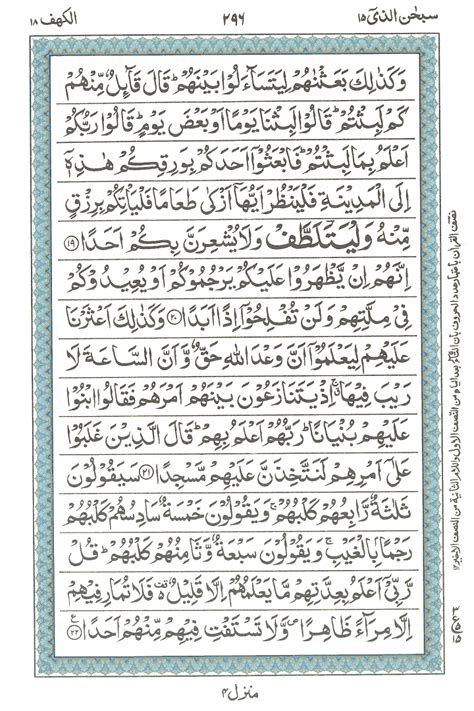 سبحٰن الذی ١٥
٢٩٦
الكهف ١٨
وَكَذٰلِكَ بَعَثْنٰهُمْ لِيَتَسَآءَلُوْا بَيْنَهُمْ ؕ قَالَ قَآئِلٌ مِّنْهُمْ
كَمْ لَبِثْتُمْ ؕ قَالُوْا لَبِثْنَا يَوْمًا اَوْ بَعْضَ يَوْمٍ ؕ قَالُوْا رَبُّكُمْ
اَعْلَمُ بِمَا لَبِثْتُمْ ؕ فَابْعَثُوْۤا اَحَدَكُمْ بِوَرِقِكُمْ هٰذِهٖۤ
اِلَى الْمَدِيْنَةِ فَلْيَنْظُرْ اَيُّهَاۤ اَزْكٰى طَعَامًا فَلْيَاْتِكُمْ بِرِزْقٍ
مِّنْهُ وَلْيَتَلَطَّفْ وَلَا يُشْعِرَنَّ بِكُمْ اَحَدًا ﴿١٩﴾
اِنَّهُمْ اِنْ يَّظْهَرُوْا عَلَيْكُمْ يَرْجُمُوْكُمْ اَوْ يُعِيْدُوْكُمْ
فِىْ مِلَّتِهِمْ وَلَنْ تُفْلِحُوْۤا اِذًا اَبَدًا ﴿٢٠﴾ وَكَذٰلِكَ اَعْثَرْنَا
عَلَيْهِمْ لِيَعْلَمُوْۤا اَنَّ وَعْدَ اللّٰهِ حَقٌّ وَّاَنَّ السَّاعَةَ لَا
رَيْبَ فِيْهَا ۚ اِذْ يَتَنَازَعُوْنَ بَيْنَهُمْ اَمْرَهُمْ فَقَالُوا ابْنُوْا
عَلَيْهِمْ بُنْيَانًا ؕ رَبُّهُمْ اَعْلَمُ بِهِمْ ؕ قَالَ الَّذِيْنَ غَلَبُوْا
عَلٰٓى اَمْرِهِمْ لَنَتَّخِذَنَّ عَلَيْهِمْ مَّسْجِدًا ﴿٢١﴾ سَيَقُوْلُوْنَ
ثَلٰثَةٌ رَّابِعُهُمْ كَلْبُهُمْ ۚ وَيَقُوْلُوْنَ خَمْسَةٌ سَادِسُهُمْ كَلْبُهُمْ
رَجْمًۢا بِالْغَيْبِ ۚ وَيَقُوْلُوْنَ سَبْعَةٌ وَّثَامِنُهُمْ كَلْبُهُمْ ؕ قُلْ
رَّبِّىْۤ اَعْلَمُ بِعِدَّتِهِمْ مَّا يَعْلَمُهُمْ اِلَّا قَلِيْلٌ ۬ فَلَا تُمَارِ فِيْهِمْ
اِلَّا مِرَآءً ظَاهِرًا ۪ وَّلَا تَسْتَفْتِ فِيْهِمْ مِّنْهُمْ اَحَدًا ﴿٢٢﴾
منزل ٤